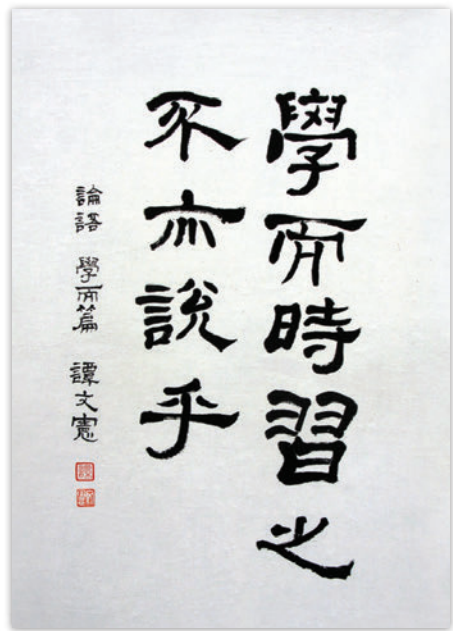 學而時習之
不亦說乎
論語 學而篇 譚文憲